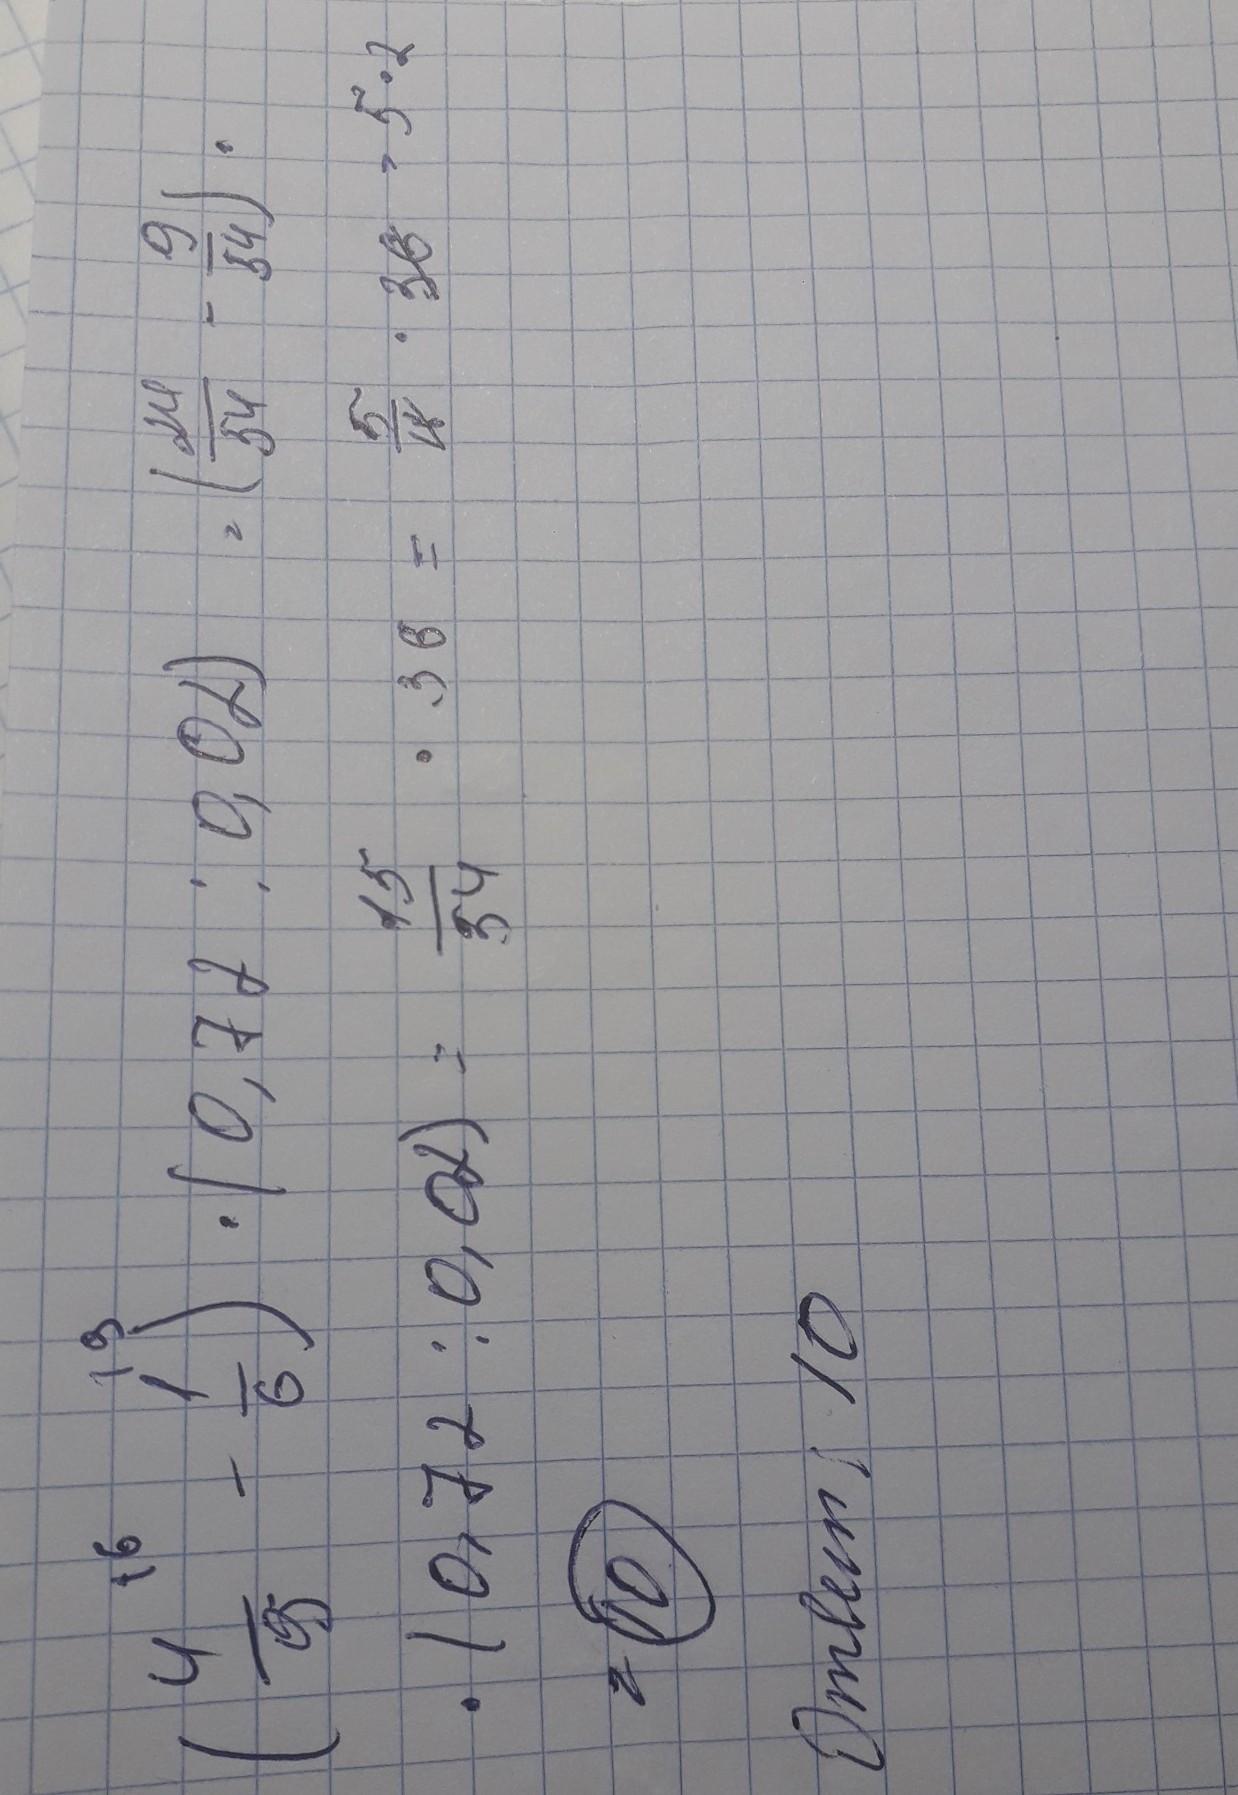 (4/9 ¹⁶ - 1/6 ¹⁹) · (0,72 : 0,02) = (24/54 - 9/54) ·
· (0,72 : 0,02) = 15/54 · 36 = 5/18 · 36 = 5·2
= 10
Ответ: 10